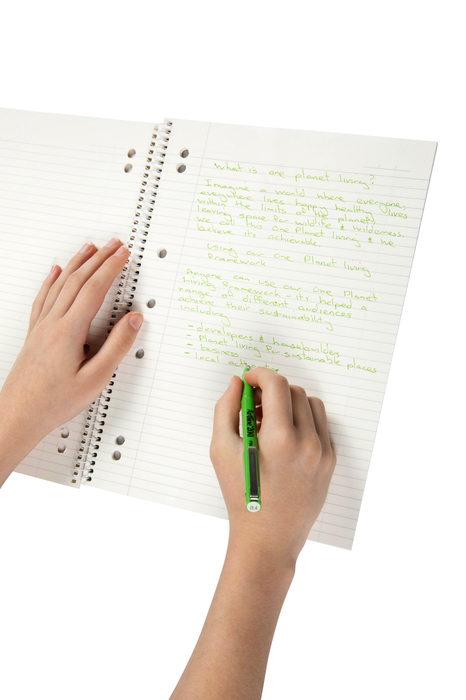 What is one planet living?
Imagine a world where everyone,
everywhere lives happy healthy lives
within the limits of the planet,
leaving space for wildlife & wilderness.
We call this one Planet living & we
believe its achievable.
Using our one Planet living
Framework
Anyone can use our one Planet
living framework, its helped a
range of different audiences
achieve their sustainability
including
- developers & housebuilders
- Planet living for sustainable places
- business
- local
0.4